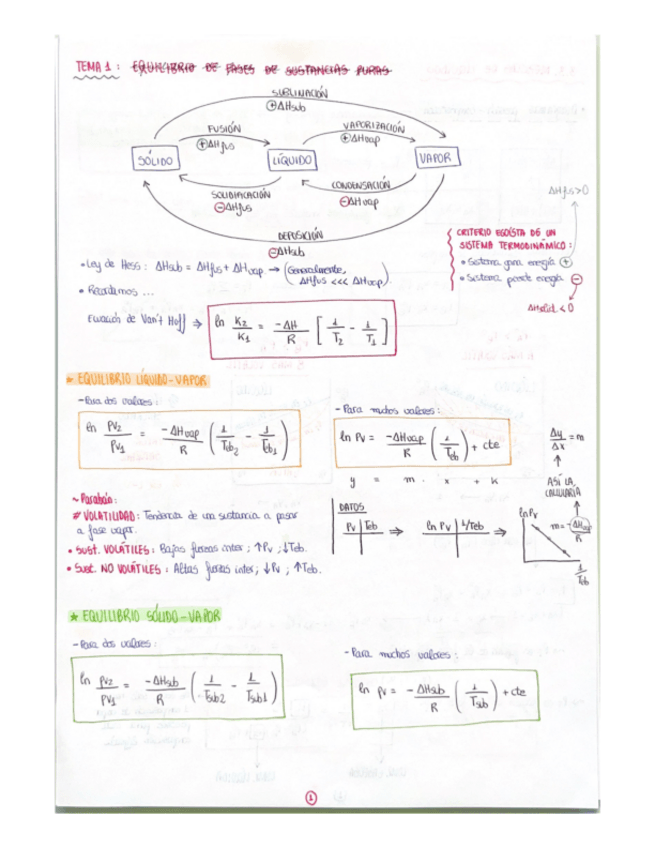 TEMA 1 : EQUILIBRIO DE FASES DE SUSTANCIAS PURAS
SUBLIMACIÓN
⊕ΔHsub
FUSIÓN
⊕ΔHfus
VAPORIZACIÓN
⊕ΔHvap
SÓLIDO
LÍQUIDO
VAPOR
SOLIDIFICACIÓN
⊖ΔHfus
CONDENSACIÓN
⊖ΔHvap
ΔHfus>0
DEPOSICIÓN
⊖ΔHsub
CRITERIO EGOÍSTA DE UN
SISTEMA TERMODINÁMICO :
• Sistema gana energía ⊕
• Sistema pierde energía ⊖
ΔHsolid. < 0
• Ley de Hess : ΔHsub = ΔHfus + ΔHvap → (Generalmente, ΔHfus <<< ΔHvap)
• Recordamos ...
Ecuación de Van't Hoff ⇒ ln K2/K1 = -ΔH/R [ 1/T2 - 1/T1 ]
* EQUILIBRIO LÍQUIDO-VAPOR
- Para dos valores :
ln Pv2/Pv1 = -ΔHvap/R ( 1/Teb2 - 1/Teb1 )
- Para muchos valores :
ln Pv = -ΔHvap/R ( 1/Teb ) + cte
y = m . x + k
Δy/Δx = m
ASÍ LA
CALCULARÍA
m = -ΔHvap/R
~ Parabán :
# VOLATILIDAD : Tendencia de una sustancia a pasar
a fase vapor.
• Sust. VOLÁTILES : Bajas fuerzas inter ; ↑Pv ; ↓Teb.
• Sust. NO VOLÁTILES : Altas fuerzas inter ; ↓Pv ; ↑Teb.
DATOS
Pv | Teb ⇒ ln Pv | 1/Teb ⇒
ln Pv
1/Teb
* EQUILIBRIO SÓLIDO-VAPOR
- Para dos valores :
ln Pv2/Pv1 = -ΔHsub/R ( 1/Tsub2 - 1/Tsub1 )
- Para muchos valores :
ln Pv = -ΔHsub/R ( 1/Tsub ) + cte
1